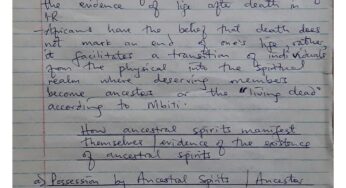 the evidence of life after death in
ATR
- Africans have the belief that death does
not mark an end of one's life, rather
it facilitates a transition of individuals
from the physical into the spiritual
realm where deserving members
become ancestors or the "living dead"
according to Mbiti.
How ancestral spirits manifest
themselves / evidence of the existence
of ancestral spirits
a) Possession by Ancestral Spirits / Ancestor